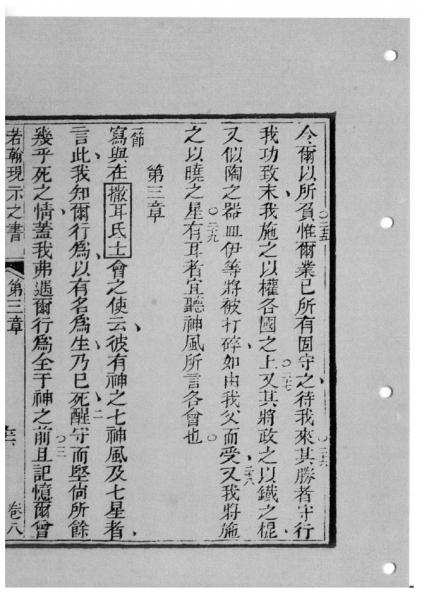 今爾以所負惟爾業已所有固守之待我來其勝者守行
○二五
○二六
我功致末我施之以權各國之上又其將政之以鐵之棍
○二七
又似陶之器皿伊等將被打碎如由我父而受又我將施
二八
之以曉之星有耳者宜聽神風所言各會也
○二九
第三章
一節
寫與在撒耳氏士會之使云彼有神之七神風及七星者
言此我知爾行爲以有名爲生乃已死醒守而堅尚所餘
二
幾乎死之情蓋我弗遇爾行爲全于神之前且記憶爾曾
○三
若翰現示之書
第三章
卷八